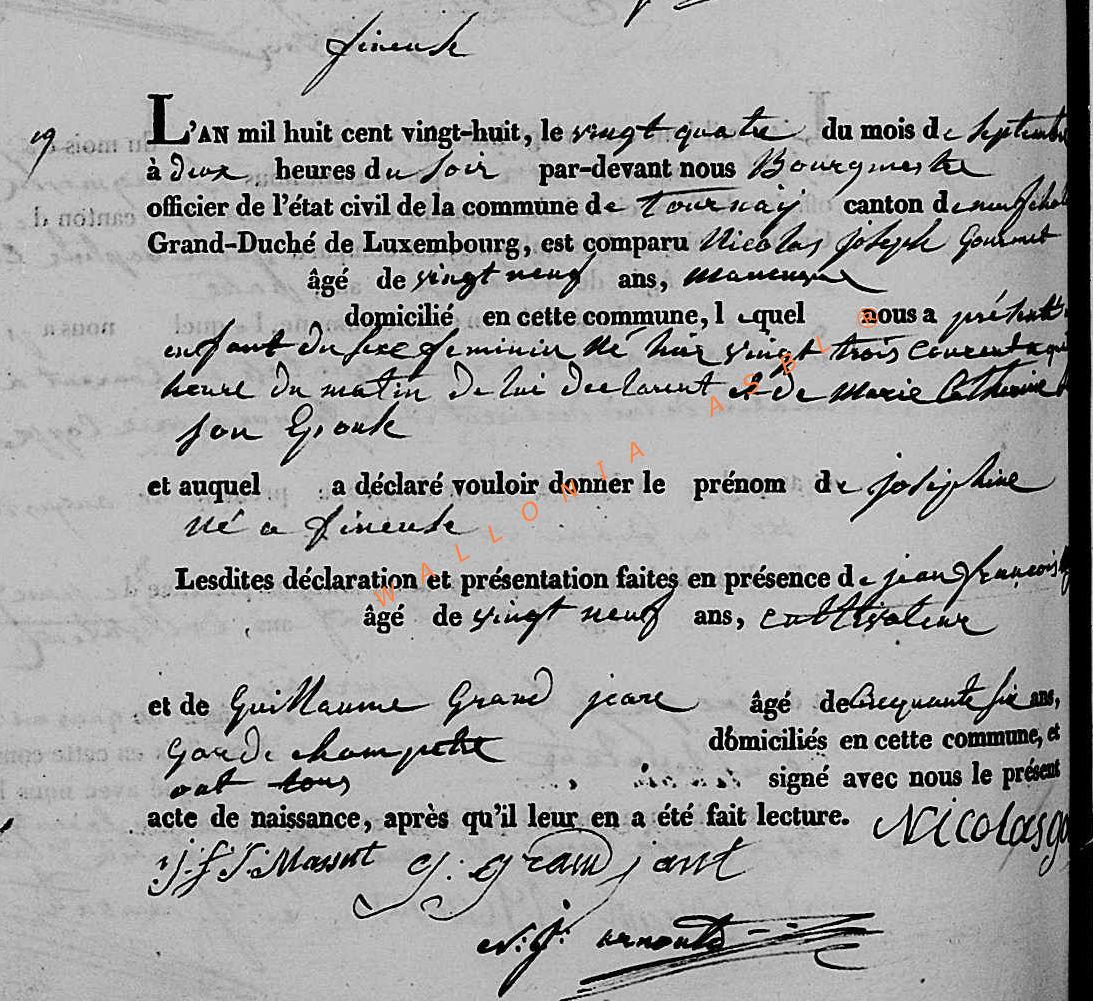 fineuse
19. L'AN mil huit cent vingt-huit, le vingt quatre du mois de septembre
à deux heures du soir par-devant nous Bourgmestre
officier de l'état civil de la commune de tournay canton de neufchat
Grand-Duché de Luxembourg, est comparu Nicolas joseph Gourmet
âgé de vingt neuf ans,
domicilié en cette commune, lequel nous a présenté
enfant du sexe feminin né hier vingt trois courent a
heure du matin de lui declarent et de Marie Catherine
son Epouse
et auquel a déclaré vouloir donner le prénom de josephine
né a fineuse
Lesdites déclaration et présentation faites en présence de jean françois
âgé de vingt neuf ans, cultivateur
et de Guillaume Grand jean âgé de cicquante six ans,
Garde champetre domiciliés en cette commune, et
ont tous signé avec nous le présent
acte de naissance, après qu'il leur en a été fait lecture. Nicolas go
j. f. j. Massut g. grand jant
arnould
WALLONIA ASBL ®